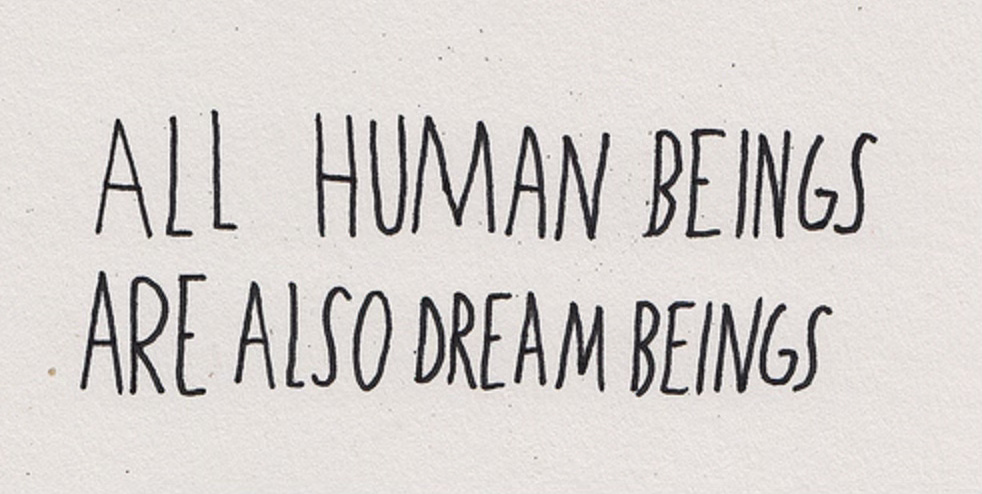 ALL HUMAN BEINGS
ARE ALSO DREAM BEINGS